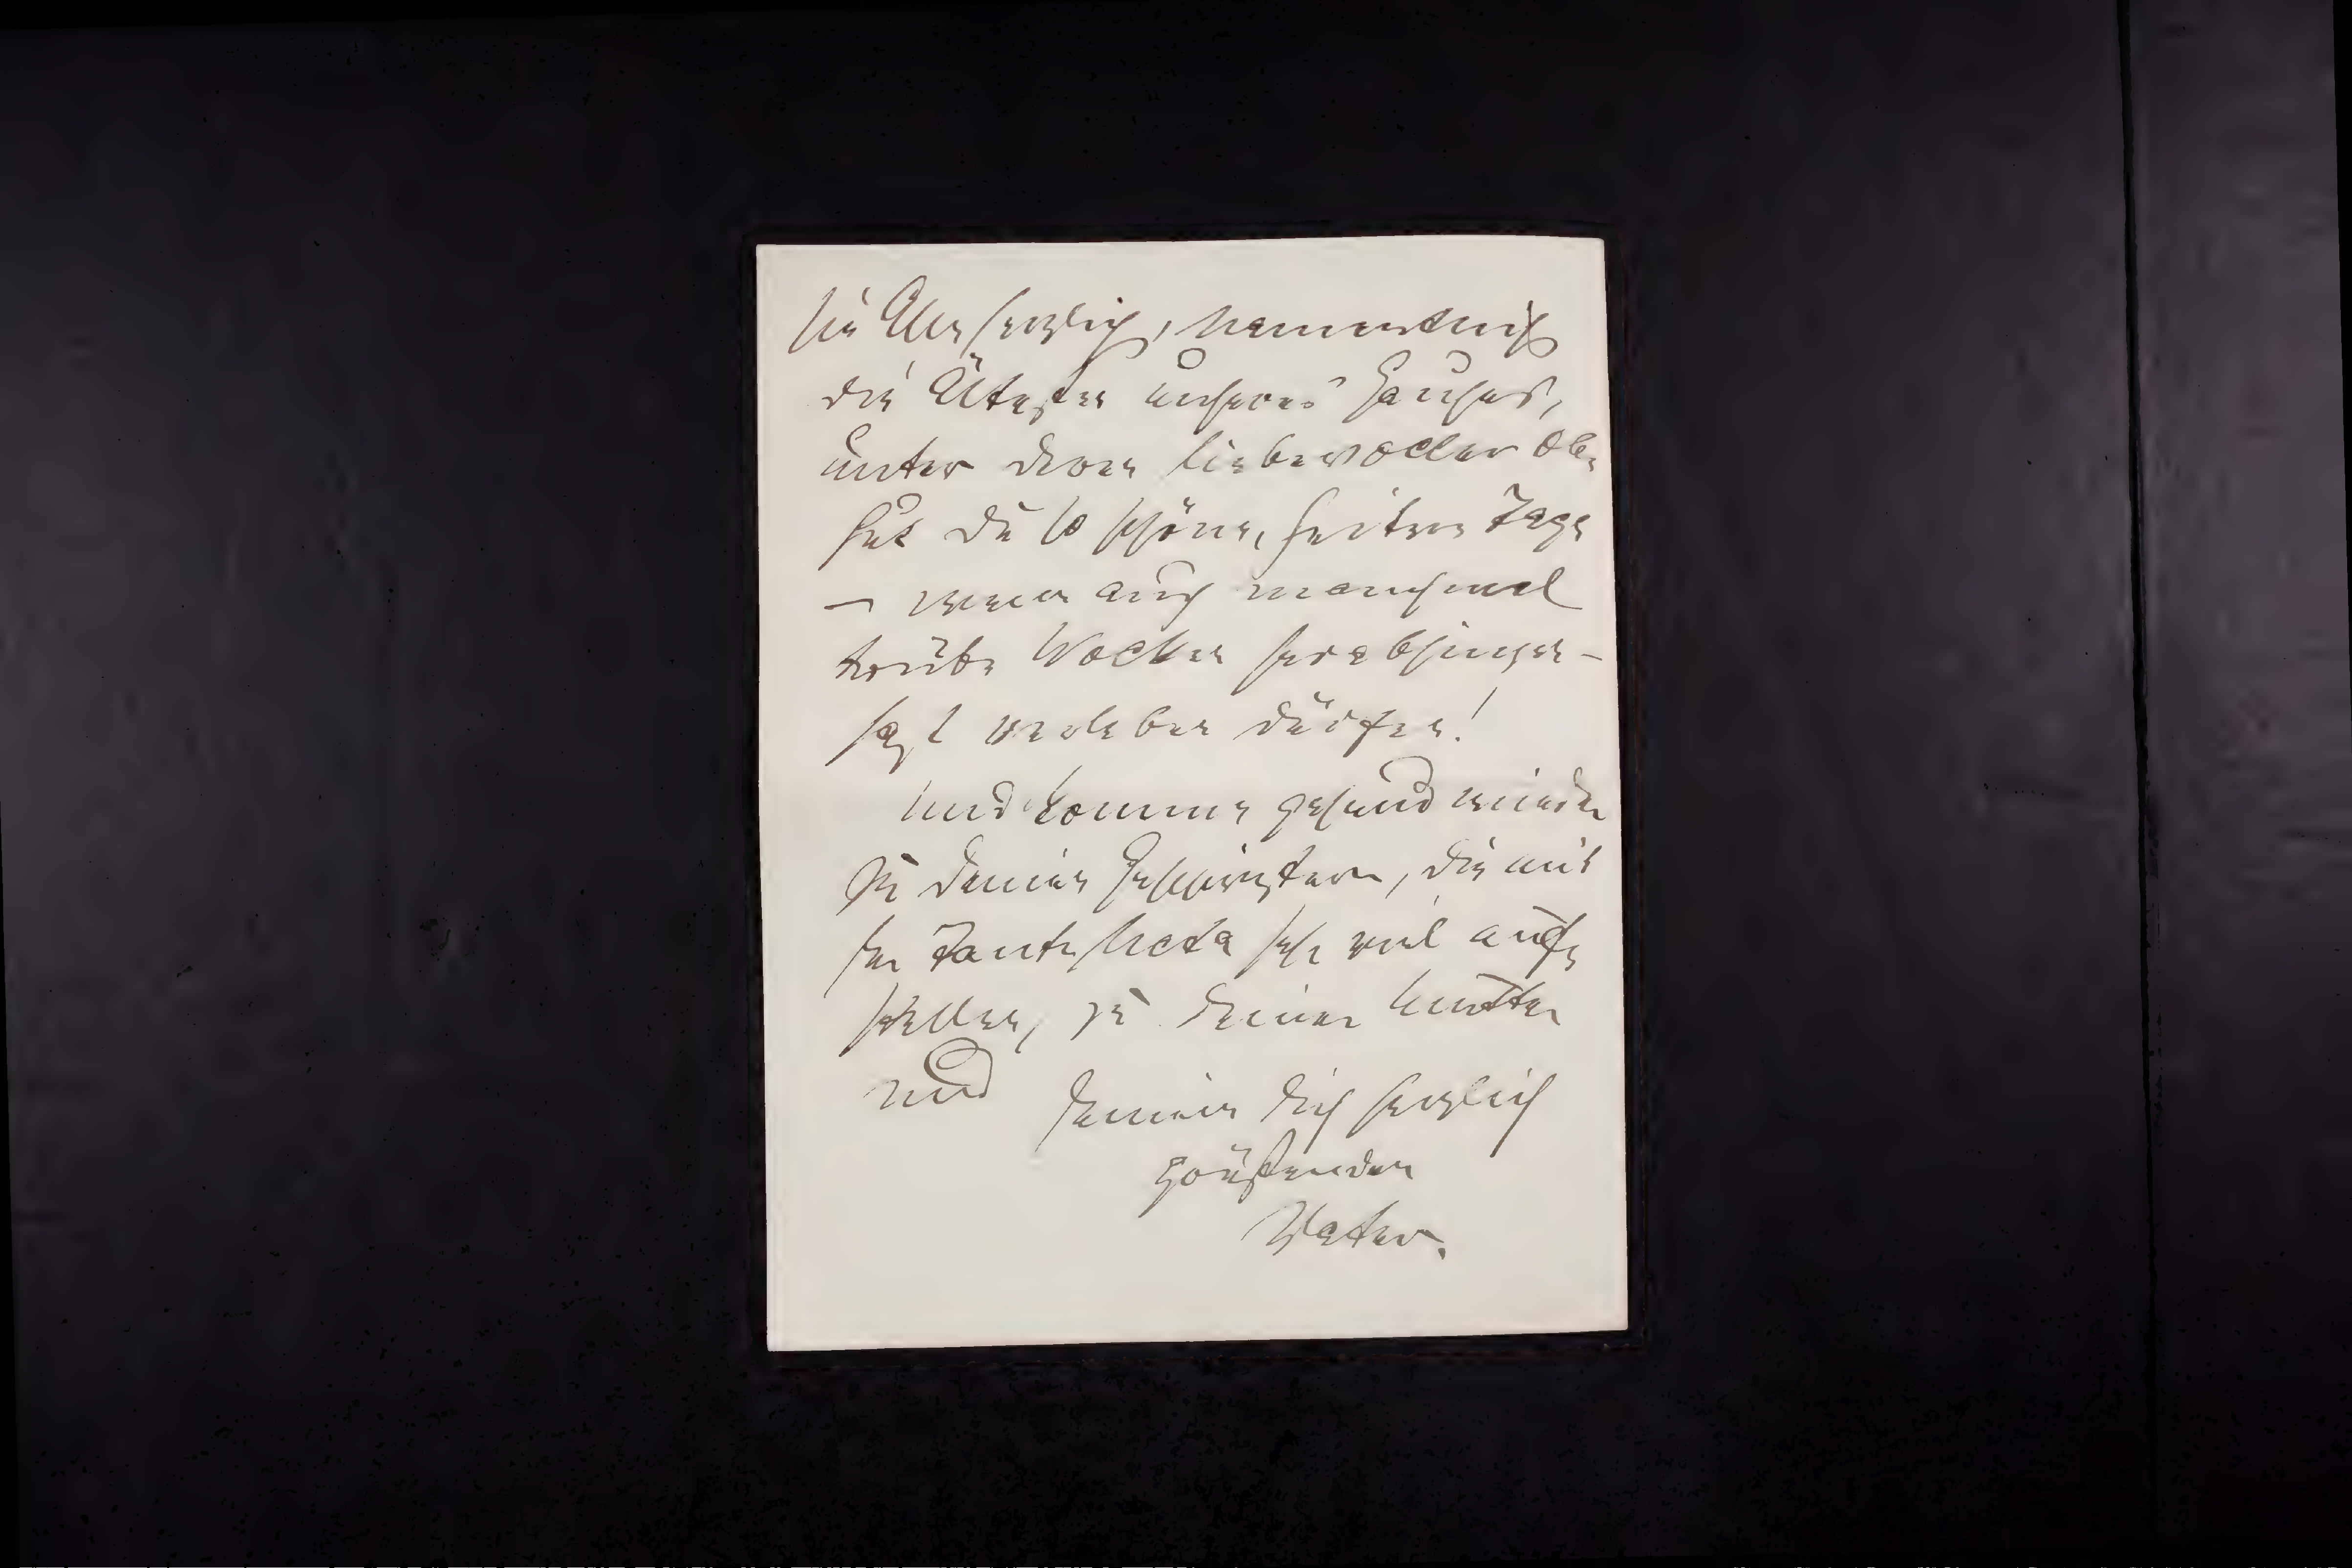 sie Alle herzlich, namentlich
die Älteste unseres Hauses,
unter deren liebevoller Ob-
hut du so schöne, heitere Tage
— wenn auch manchmal
trübe Wolken herabhingen —
hast verleben dürfen!
Und komme gesund wieder
zu deinen Geschwistern, die mit
der Tante Meta sehr viel auf-
stellen, zu deiner Mutter
und deinem dich herzlich
grüßenden
Vater.